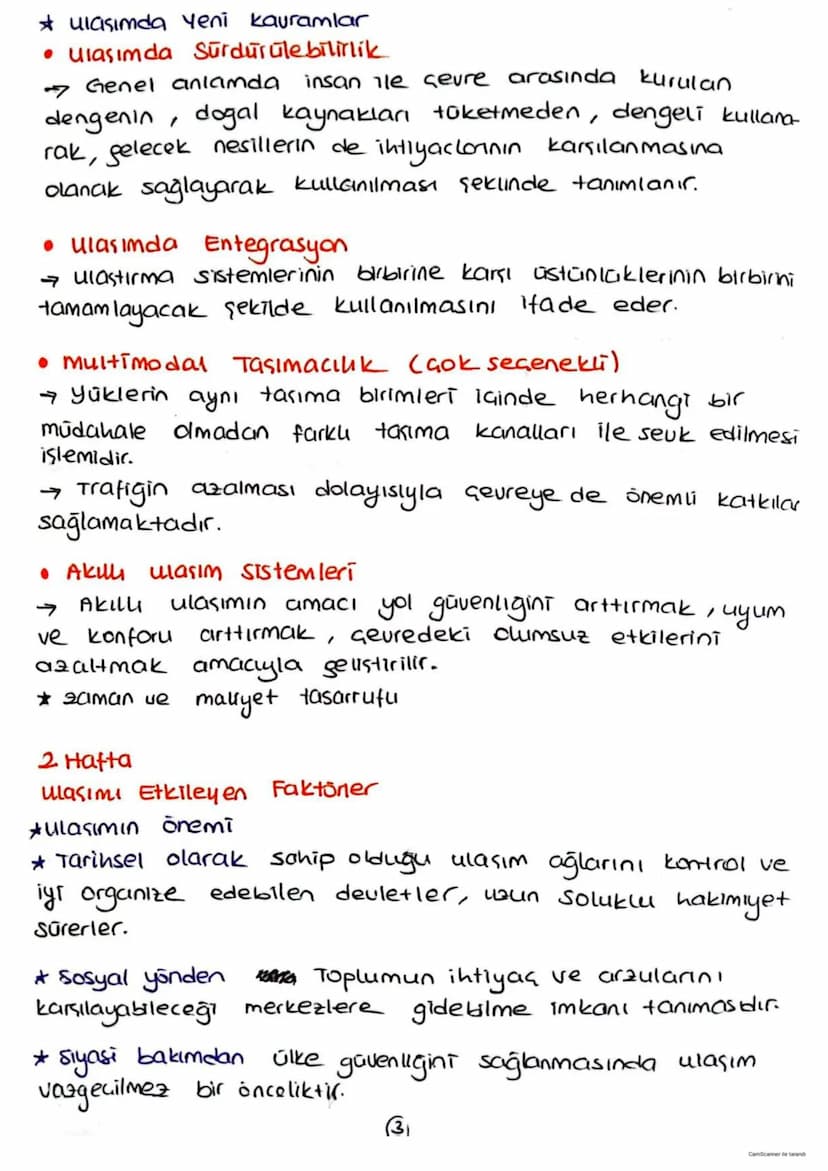 ★ ulaşımda yeni kavramlar
• ulaşımda Sürdürülebilirlik
→ Genel anlamda insan ile çevre arasında kurulan
dengenin, doğal kaynakları tüketmeden, dengeli kullana-
rak, gelecek nesillerin de ihtiyaclarının karşılanmasına
olanak sağlayarak kullanılması şeklinde tanımlanır.
• ulaşımda Entegrasyon
→ ulaştırma sistemlerinin birbirine karşı üstünlüklerinin birbirini
tamamlayacak şekilde kullanılmasını ifade eder.
• multimodal Taşımacılık (çok seçenekli)
→ yüklerin aynı taşıma birimleri içinde herhangi bir
müdahale olmadan farklı taşıma kanalları ile sevk edilmesi
işlemidir.
→ Trafiğin azalması dolayısıyla çevreye de önemli katkılar
sağlamaktadır.
• Akıllı ulaşım sistemleri
→ Akıllı ulaşımın amacı yol güvenliğini arttırmak, uyum
ve konforu arttırmak, çevredeki olumsuz etkilerini
azaltmak amacıyla geliştirilir.
★ zaman ve maliyet tasarrufu
2 Hafta
ulaşımı Etkileyen Faktöner
★ulaşımın önemi
★ Tarihsel olarak sahip olduğu ulaşım ağlarını kontrol ve
iyi organize edebilen devletler, uzun soluklu hakimiyet
sürerler.
★ Sosyal yönden Toplumun ihtiyaç ve arzularını
karşılayabileceği merkezlere gidebilme imkanı tanımasıdır.
★ Siyasi bakımdan ülke güvenliğini sağlanmasında ulaşım
vazgeçilmez bir önceliktir.
3
CamScanner ile tarandı